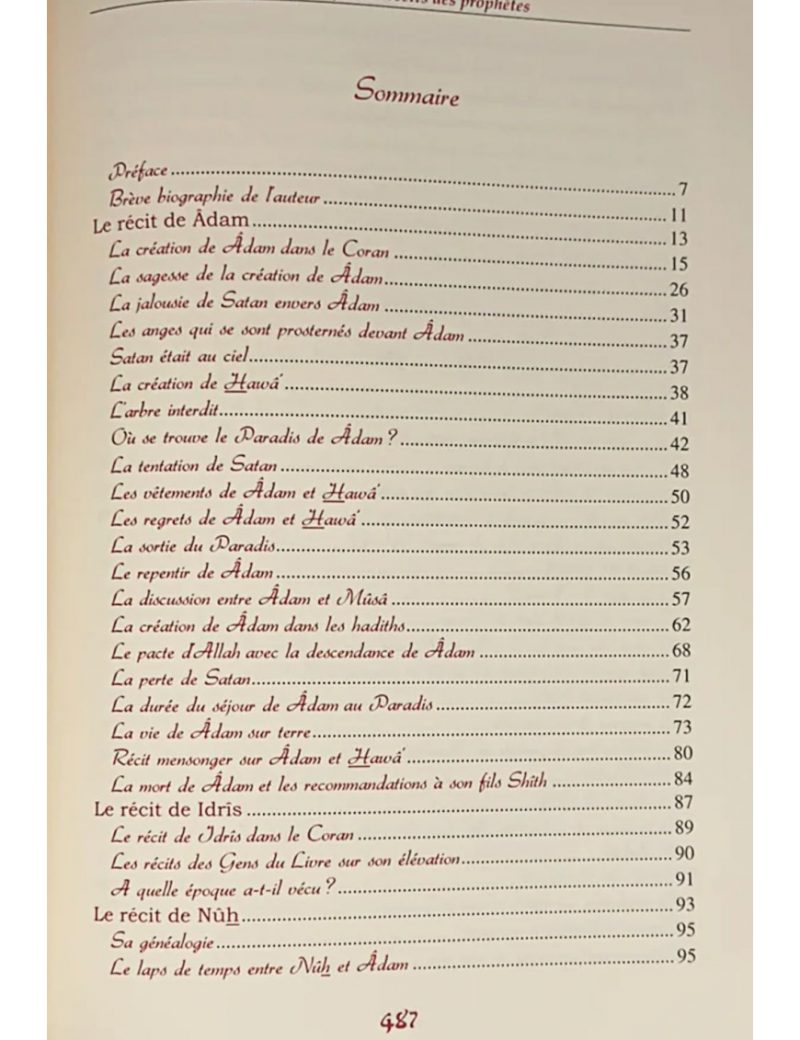 des prophètes
Sommaire
Préface ........ 7
Brève biographie de l'auteur ........ 11
Le récit de Âdam ........ 13
La création de Âdam dans le Coran ........ 15
La sagesse de la création de Âdam ........ 26
La jalousie de Satan envers Âdam ........ 31
Les anges qui se sont prosternés devant Âdam ........ 37
Satan était au ciel ........ 37
La création de Hawâ' ........ 38
L'arbre interdit ........ 41
Où se trouve le Paradis de Âdam ? ........ 42
La tentation de Satan ........ 48
Les vêtements de Âdam et Hawâ' ........ 50
Les regrets de Âdam et Hawâ' ........ 52
La sortie du Paradis ........ 53
Le repentir de Âdam ........ 56
La discussion entre Âdam et Mûsâ ........ 57
La création de Âdam dans les hadiths ........ 62
Le pacte d'Allah avec la descendance de Âdam ........ 68
La perte de Satan ........ 71
La durée du séjour de Âdam au Paradis ........ 72
La vie de Âdam sur terre ........ 73
Récit mensonger sur Âdam et Hawâ' ........ 80
La mort de Âdam et les recommandations à son fils Shîth ........ 84
Le récit de Idrîs ........ 87
Le récit de Idrîs dans le Coran ........ 89
Les récits des Gens du Livre sur son élévation ........ 90
A quelle époque a-t-il vécu ? ........ 91
Le récit de Nûh ........ 93
Sa généalogie ........ 95
Le laps de temps entre Nûh et Âdam ........ 95
487